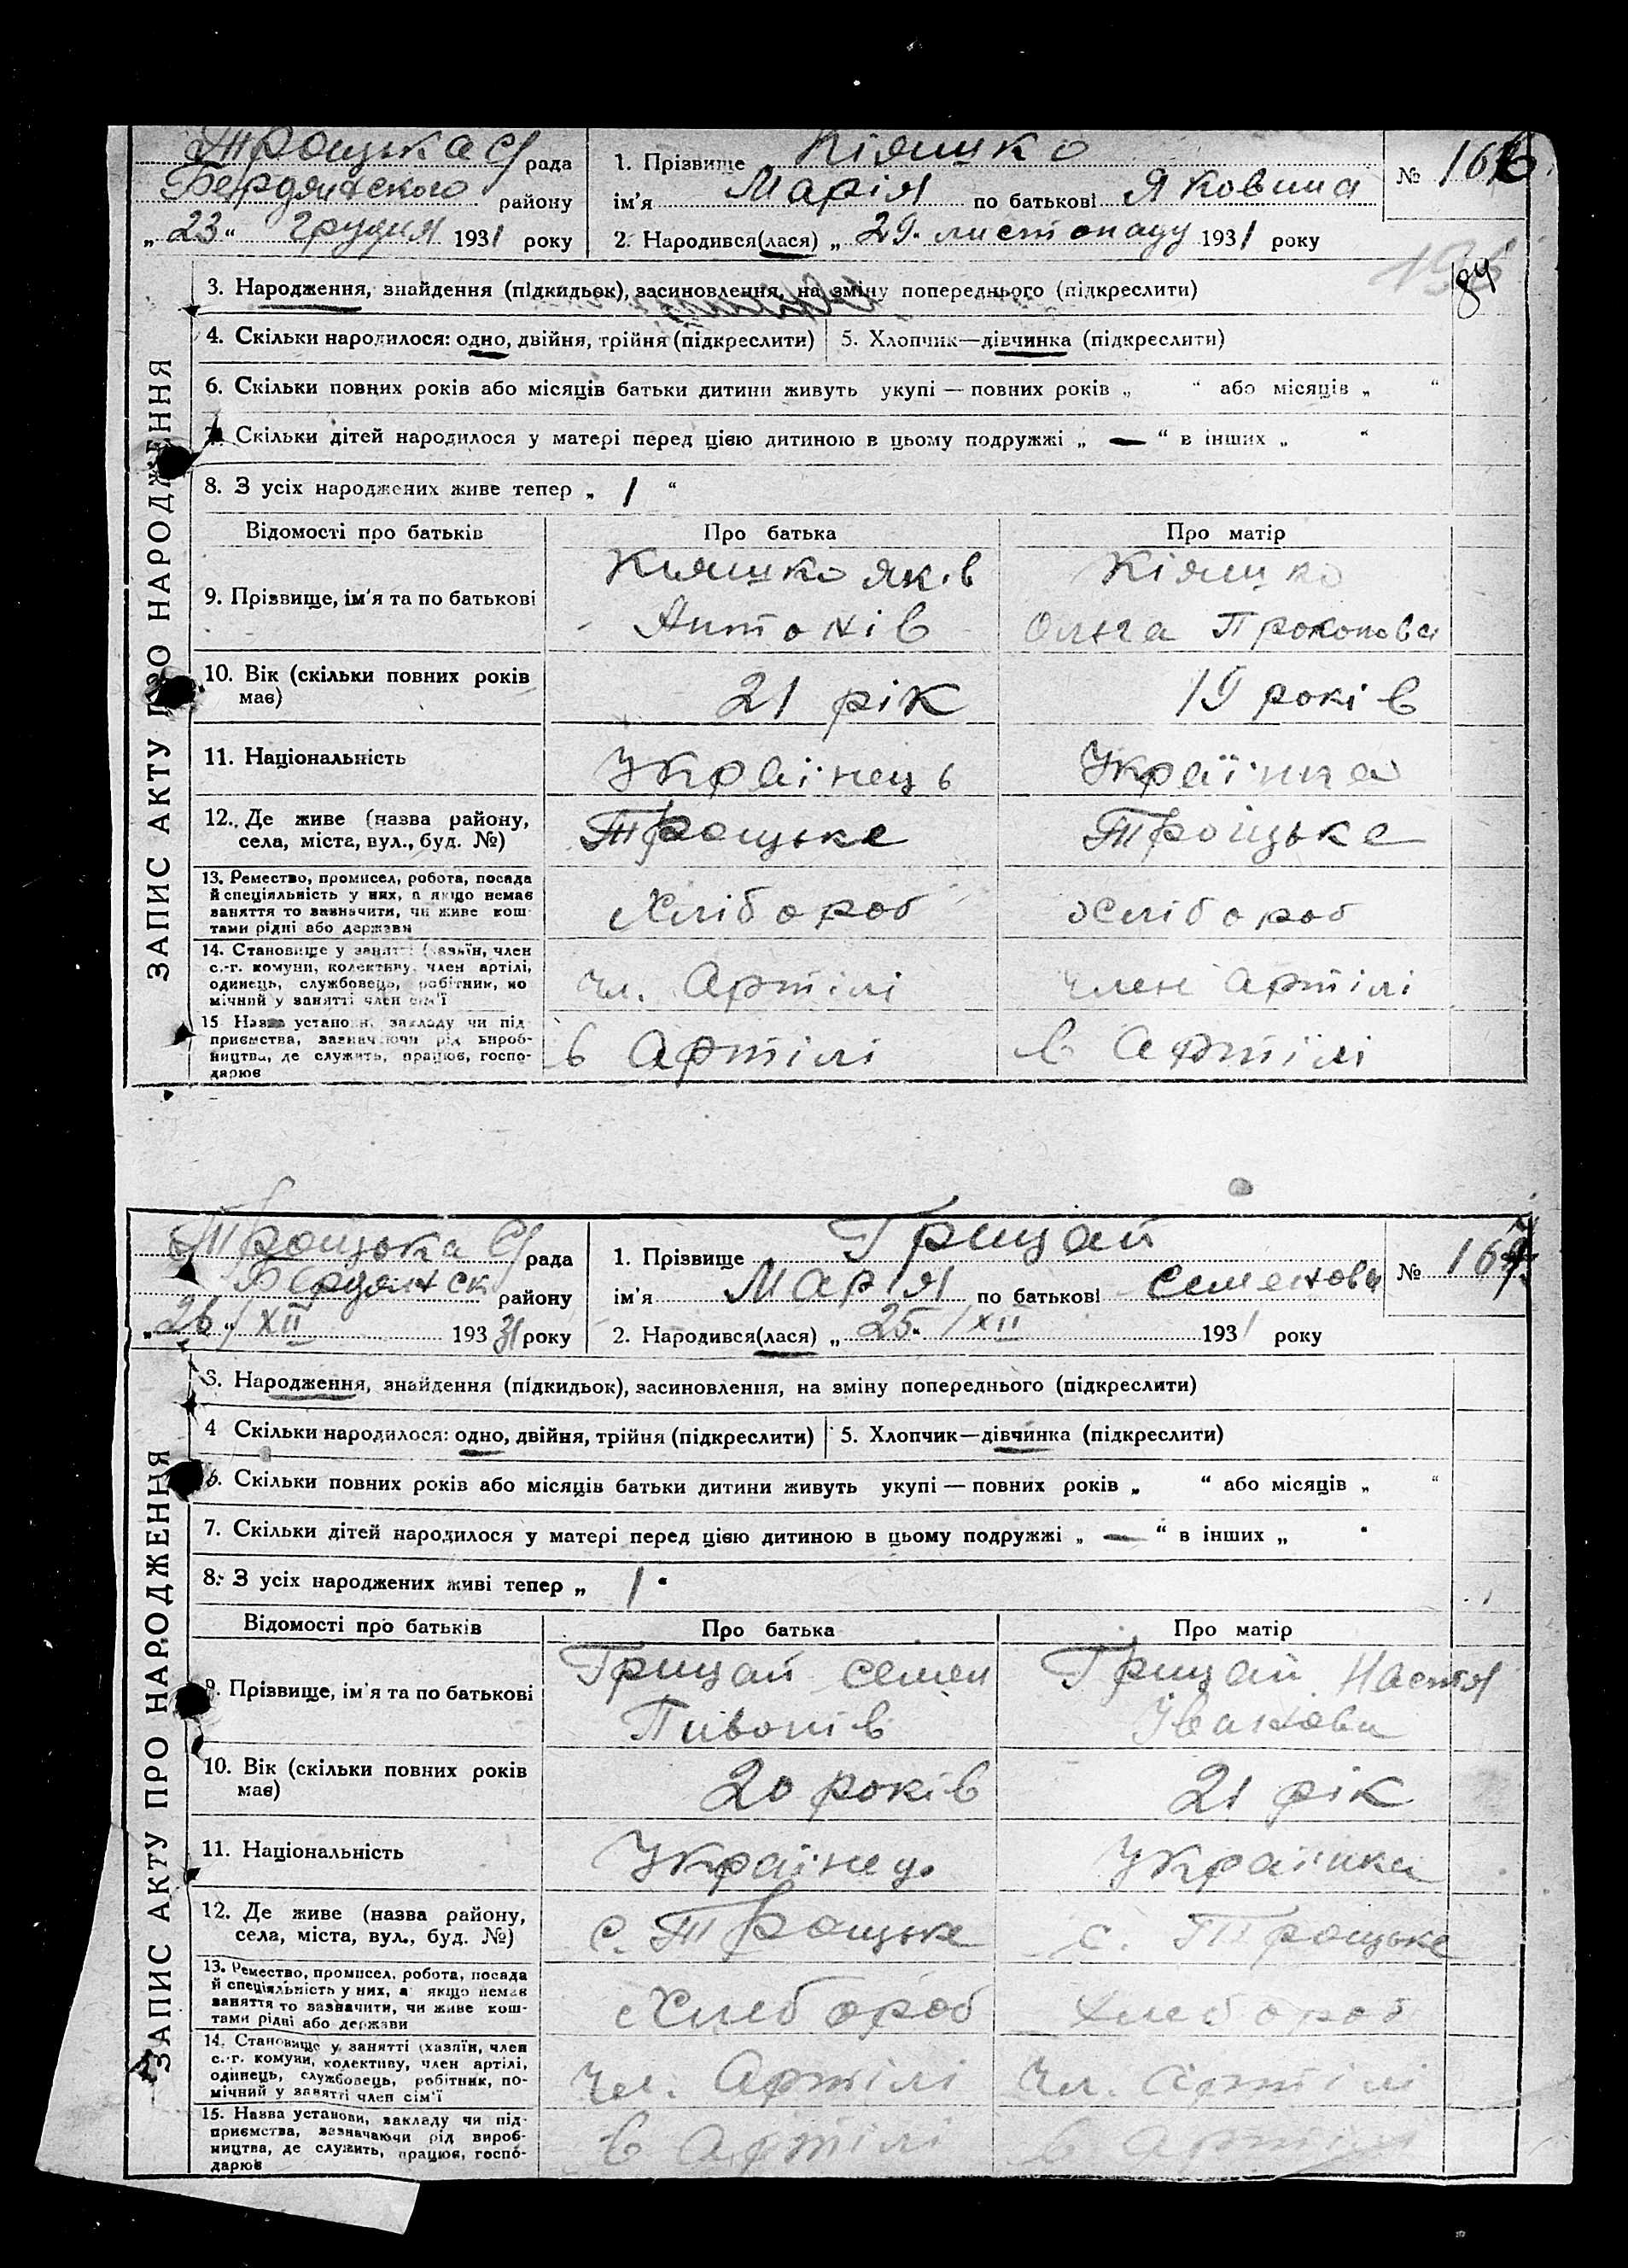 Троицька с/рада
Бердянского району
„23“ Грудня 1931 року
1. Прізвище Кіяшко
ім'я Марія по батькові Яковина
2. Народився(лася) „29“ листопаду 1931 року
№ 166
84
3. Народження, знайдення (підкидьок), засиновлення, на зміну попереднього (підкреслити)
4. Скільки народилося: одно, двійня, трійня (підкреслити)
5. Хлопчик—дівчинка (підкреслити)
6. Скільки повних років або місяців батьки дитини живуть укупі — повних років „ “ або місяців „ “
7. Скільки дітей народилося у матері перед цією дитиною в цьому подружжі „ — “ в інших „ “
8. З усіх народжених живе тепер „ 1 “
Відомості про батьків
Про батька
Про матір
9. Прізвище, ім'я та по батькові
Кияшко Яків
Антонів
Кіяшко
Ольга Прокопова
10. Вік (скільки повних років
має)
21 рік
19 років
11. Національність
Українець
Українка
12. Де живе (назва району,
села, міста, вул., буд. №)
Троицьке
Троїцьке
13. Ремество, промисел, робота, посада
й спеціяльність у них, а якщо немає
заняття то зазначити, чи живе кош-
тами рідні або держави
Хлібороб
Хлібороб
14. Становище у занятті (хазяїн, член
с.-г. комуни, колективу, член артілі,
одинець, службовець, робітник, по
мічний у занятті член сім'ї
Чл. Артілі
Член Артілі
15 Назва установи, закладу чи під-
приємства, зазначаючи рід вироб-
ництва, де служить, працює, госпо-
дарює
в Артілі
в Артілі
ЗАПИС АКТУ ПРО НАРОДЖЕННЯ
Троицька с/рада
Бердянск району
„26“/XII 1931 року
1. Прізвище Грицай
ім'я Марія по батькові Семенова
2. Народився(лася) „25“/XII 1931 року
№ 167
3. Народження, знайдення (підкидьок), засиновлення, на зміну попереднього (підкреслити)
4 Скільки народилося: одно, двійня, трійня (підкреслити)
5. Хлопчик—дівчинка (підкреслити)
6. Скільки повних років або місяців батьки дитини живуть укупі — повних років „ “ або місяців „ “
7. Скільки дітей народилося у матері перед цією дитиною в цьому подружжі „ — “ в інших „ “
8. З усіх народжених живі тепер „ 1 “
Відомості про батьків
Про батька
Про матір
9. Прізвище, ім'я та по батькові
Грицай Семен
Пивонів
Грицай Настя
Іванова
10. Вік (скільки повних років
має)
20 років
21 рік
11. Національність
Українец.
Українка
12. Де живе (назва району,
села, міста, вул., буд. №)
с. Троицьке
с. Троицьке
13. Ремество, промисел, робота, посада
й спеціяльність у них, а якщо немає
заняття то зазначити, чи живе кош-
тами рідні або держави
Хлебороб
Хлебороб
14. Становище у занятті (хазяїн, член
с.-г. комуни, колективу, член артілі,
одинець, службовець, робітник, по-
мічний у занятті член сім'ї
Чл. Артілі
Чл. Артілі
15. Назва установи, закладу чи під-
приємства, зазначаючи рід вироб-
ництва, де служить, працює, госпо-
дарює
в Артілі
в Артілі
ЗАПИС АКТУ ПРО НАРОДЖЕННЯ